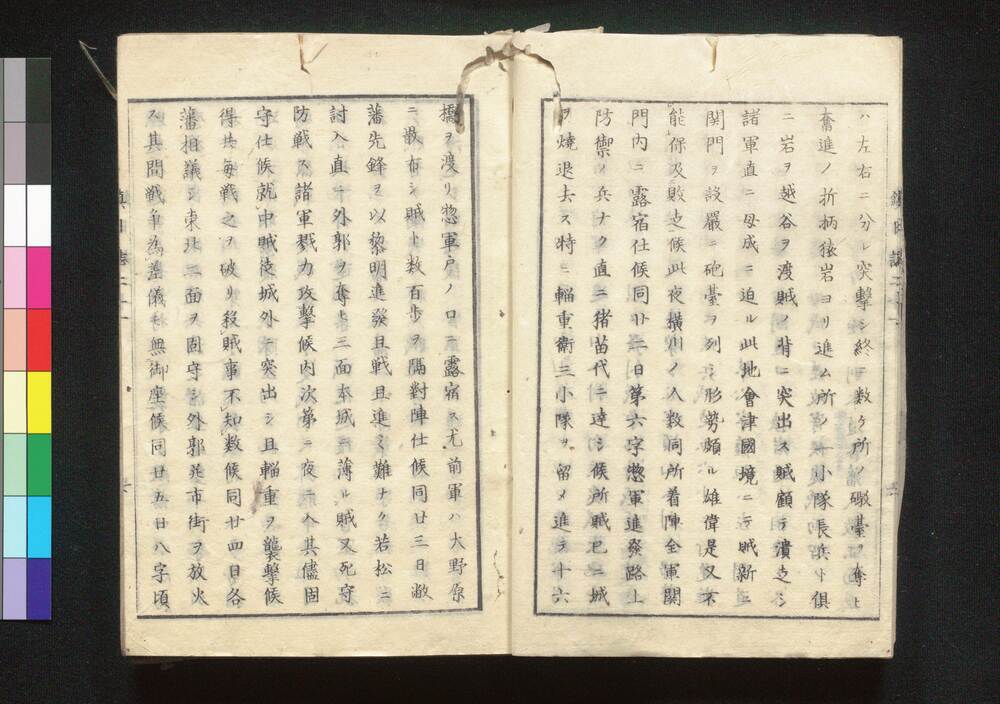 ハ左右ニ分レ突撃シ終ニ数ケ所ノ礮臺ヲ奪ヒ
奮進ノ折柄猿岩ヨリ進ム所ノ小隊長兵ト俱
ニ岩ヲ越谷ヲ渡賊ノ背ニ突出ス賊顧テ潰走シ
諸軍直ニ母成ニ迫ル此地會津國境ニテ賊新ニ
関門ヲ設嚴ニ砲臺ヲ列シ形勢頗ル雄偉是又不
能保及敗走候此夜横川ノ人数同所着陣全軍関
門内ニ露宿仕候同廿二日第六字惣軍進發路上
防禦ノ兵ナク直ニ猪苗代ニ達シ候所賊已ニ城
ヲ燒退去ス特ニ輜重衛三小隊ヲ留メ進テ十六
橋ヲ渡リ惣軍戸ノ口ニ露宿ス尤前軍ハ大野原
ニ散布シ賊ト数百歩ヲ隔對陣仕候同廿三日敝
藩先鋒ヲ以黎明進發且戦且進ミ難ナク若松ニ
討入直ニ外郭ヲ奪ヒ三面本城ニ薄ル賊又死守
防戦ス諸軍戮力攻撃候内次第ニ夜ニ入其儘固
守仕候就中賊徒城外ニ突出シ且輜重ヲ襲撃候
得共毎戦之ヲ破リ殺賊事不知数候同廿四日各
藩相議シ東北二面ヲ固守シ外郭並市街ヲ放火
ス其間戦争為差儀モ無御座候同廿五日八字頃